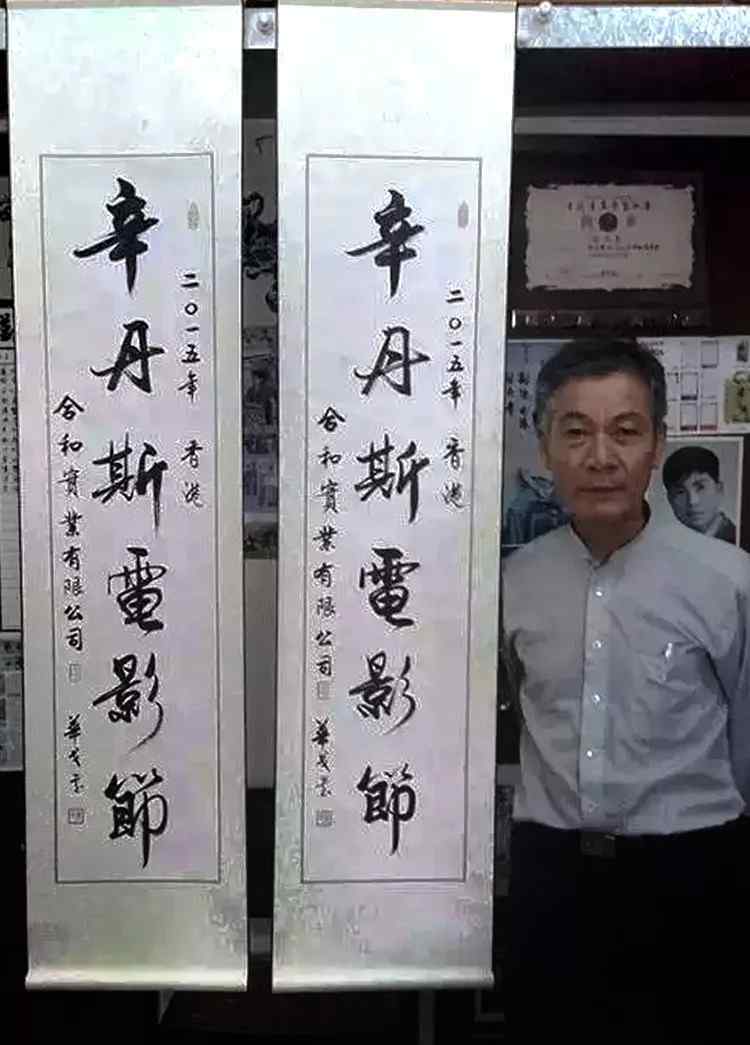 二〇一五年 香港
辛丹斯電影節
合和實業有限公司 華戈書
二〇一五年 香港
辛丹斯電影節
合和實業有限公司 華戈書